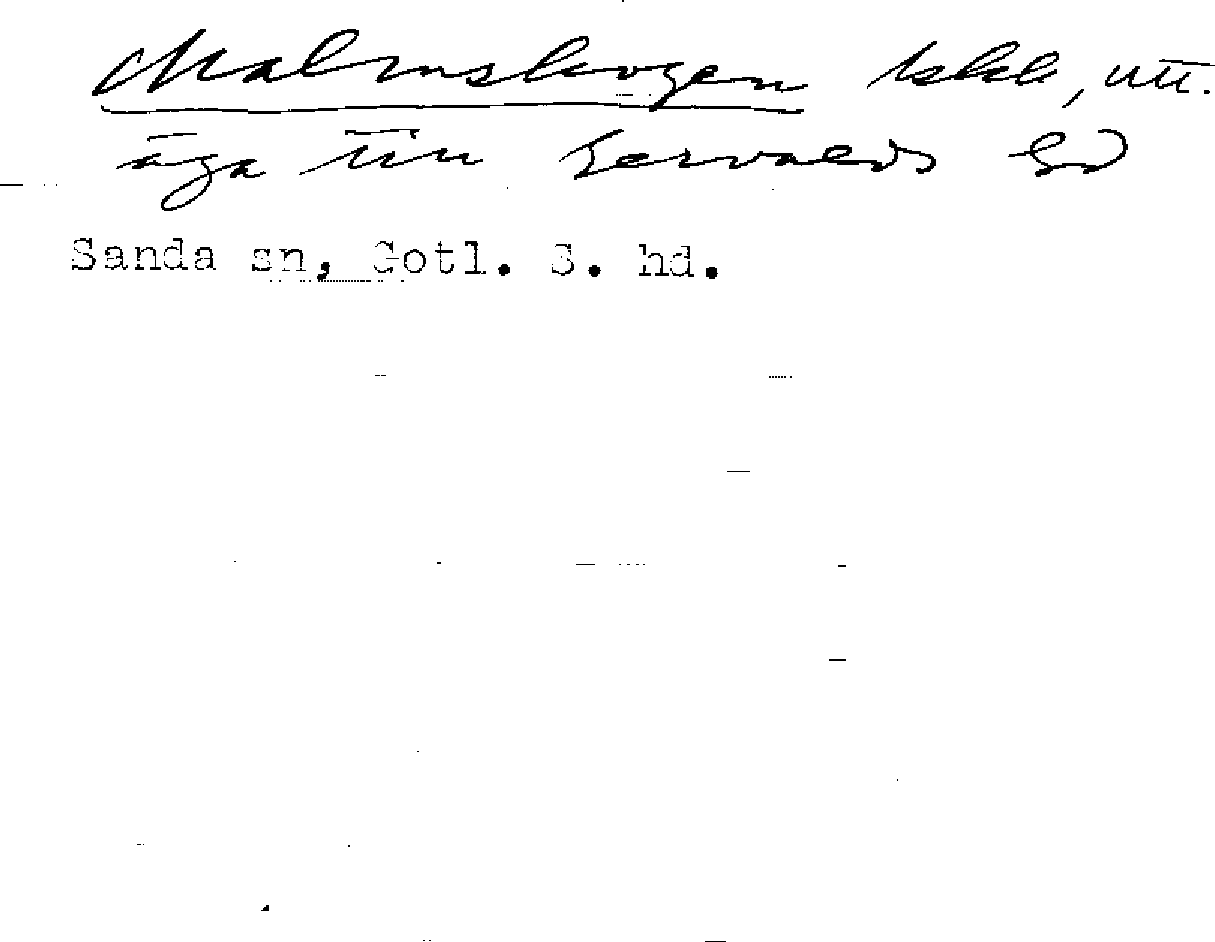 Malmskogen , ut-
äga till Gervalds Gd
Sanda sn, Gotl. S. hd.